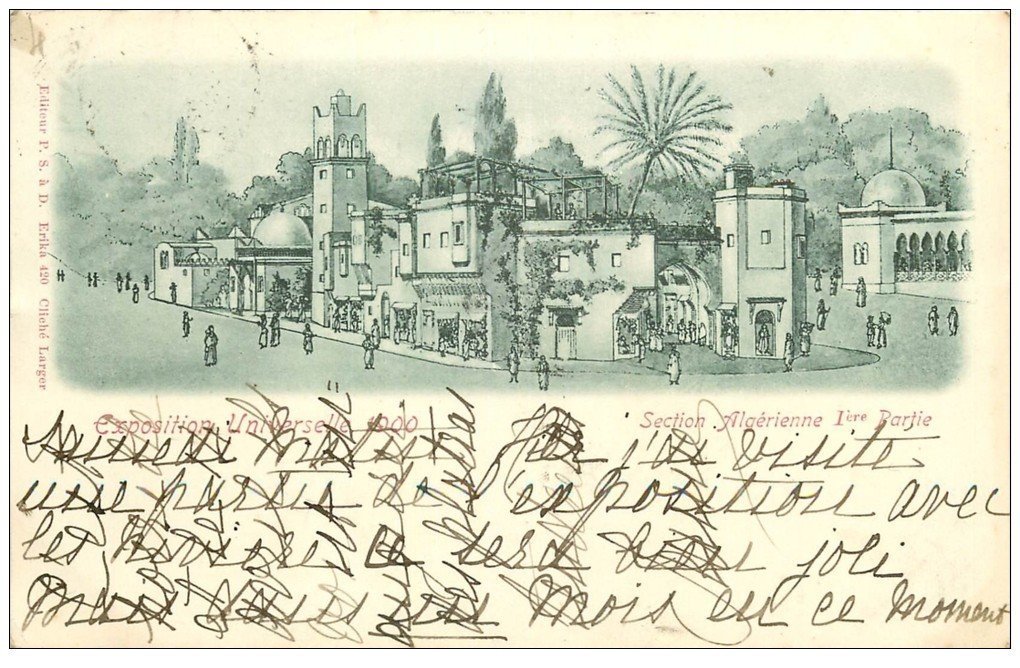 Editeur P. S. à D. Erika 420 Cliché Larger
Exposition Universelle 1900
Section Algérienne Ière Partie
j'ai visité
une partie de l'exposition avec
les ce sera bien joli
Mais dans un Mois en ce moment